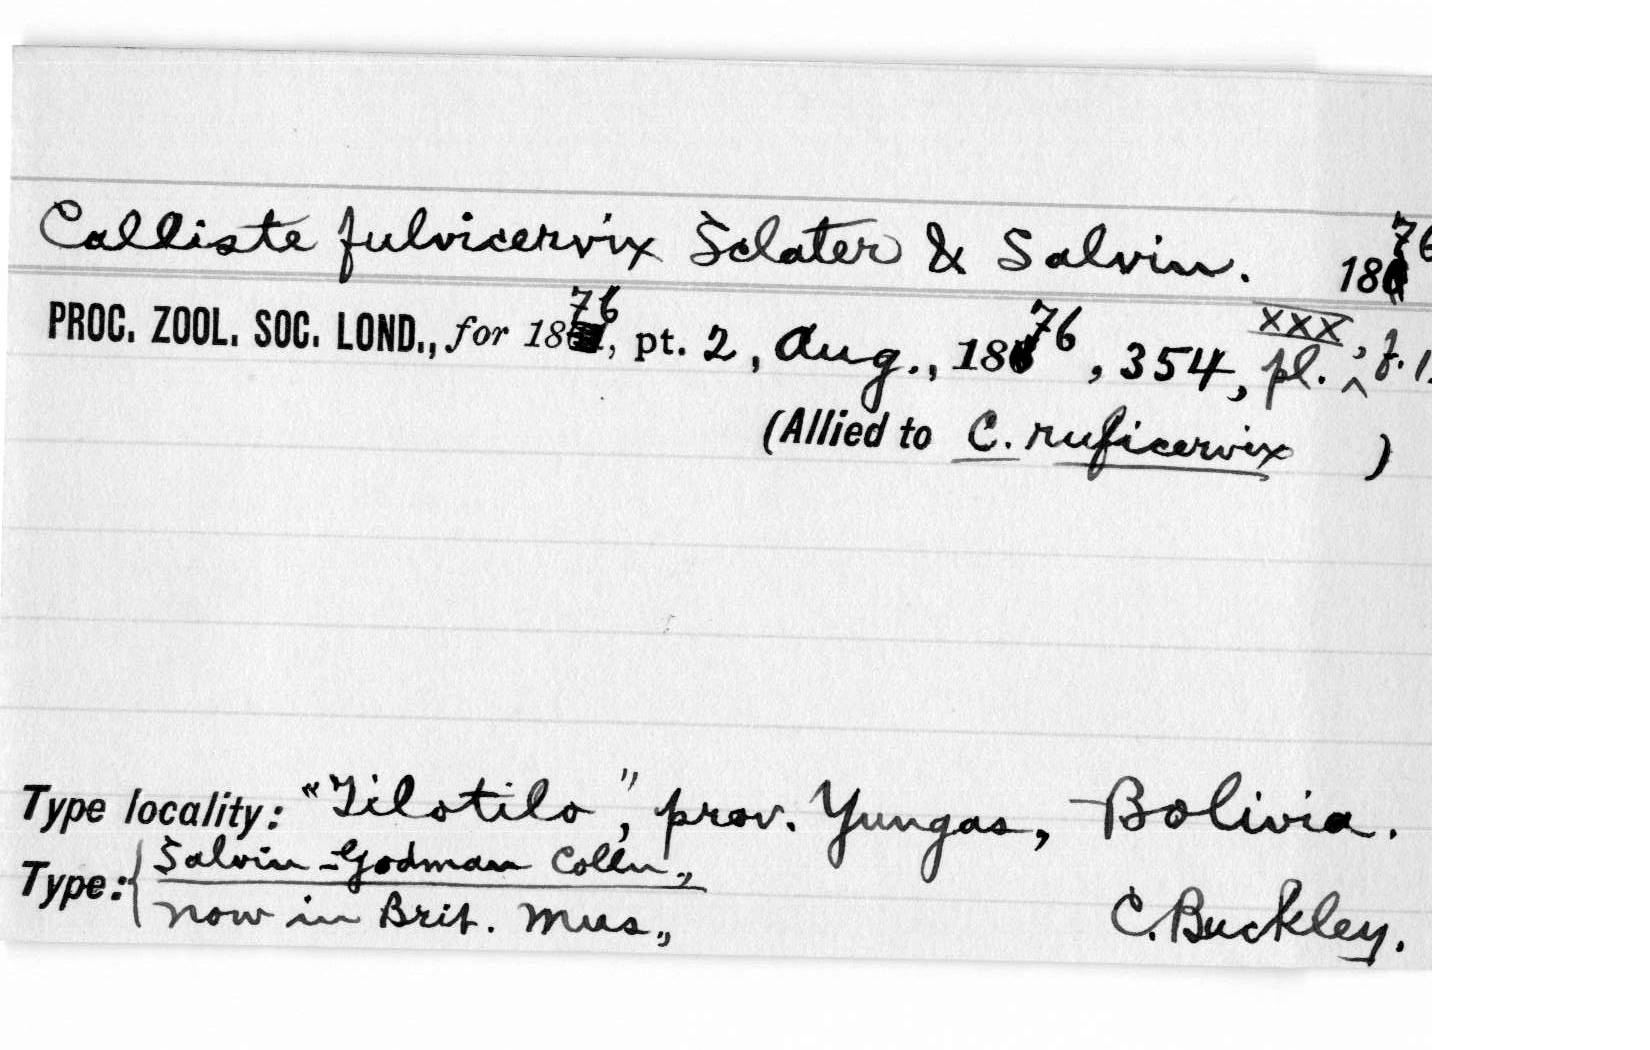 Calliste fulvicervix Sclater & Salvin. 1876
PROC. ZOOL. SOC. LOND., for 1876, pt. 2, Aug., 1876, 354, pl. XXX, f. 1.
(Allied to C. ruficervix )
Type locality: "Tilotilo", prov. Yungas, Bolivia.
Type: { Salvin-Godman Colln.,
now in Brit. Mus., C. Buckley.